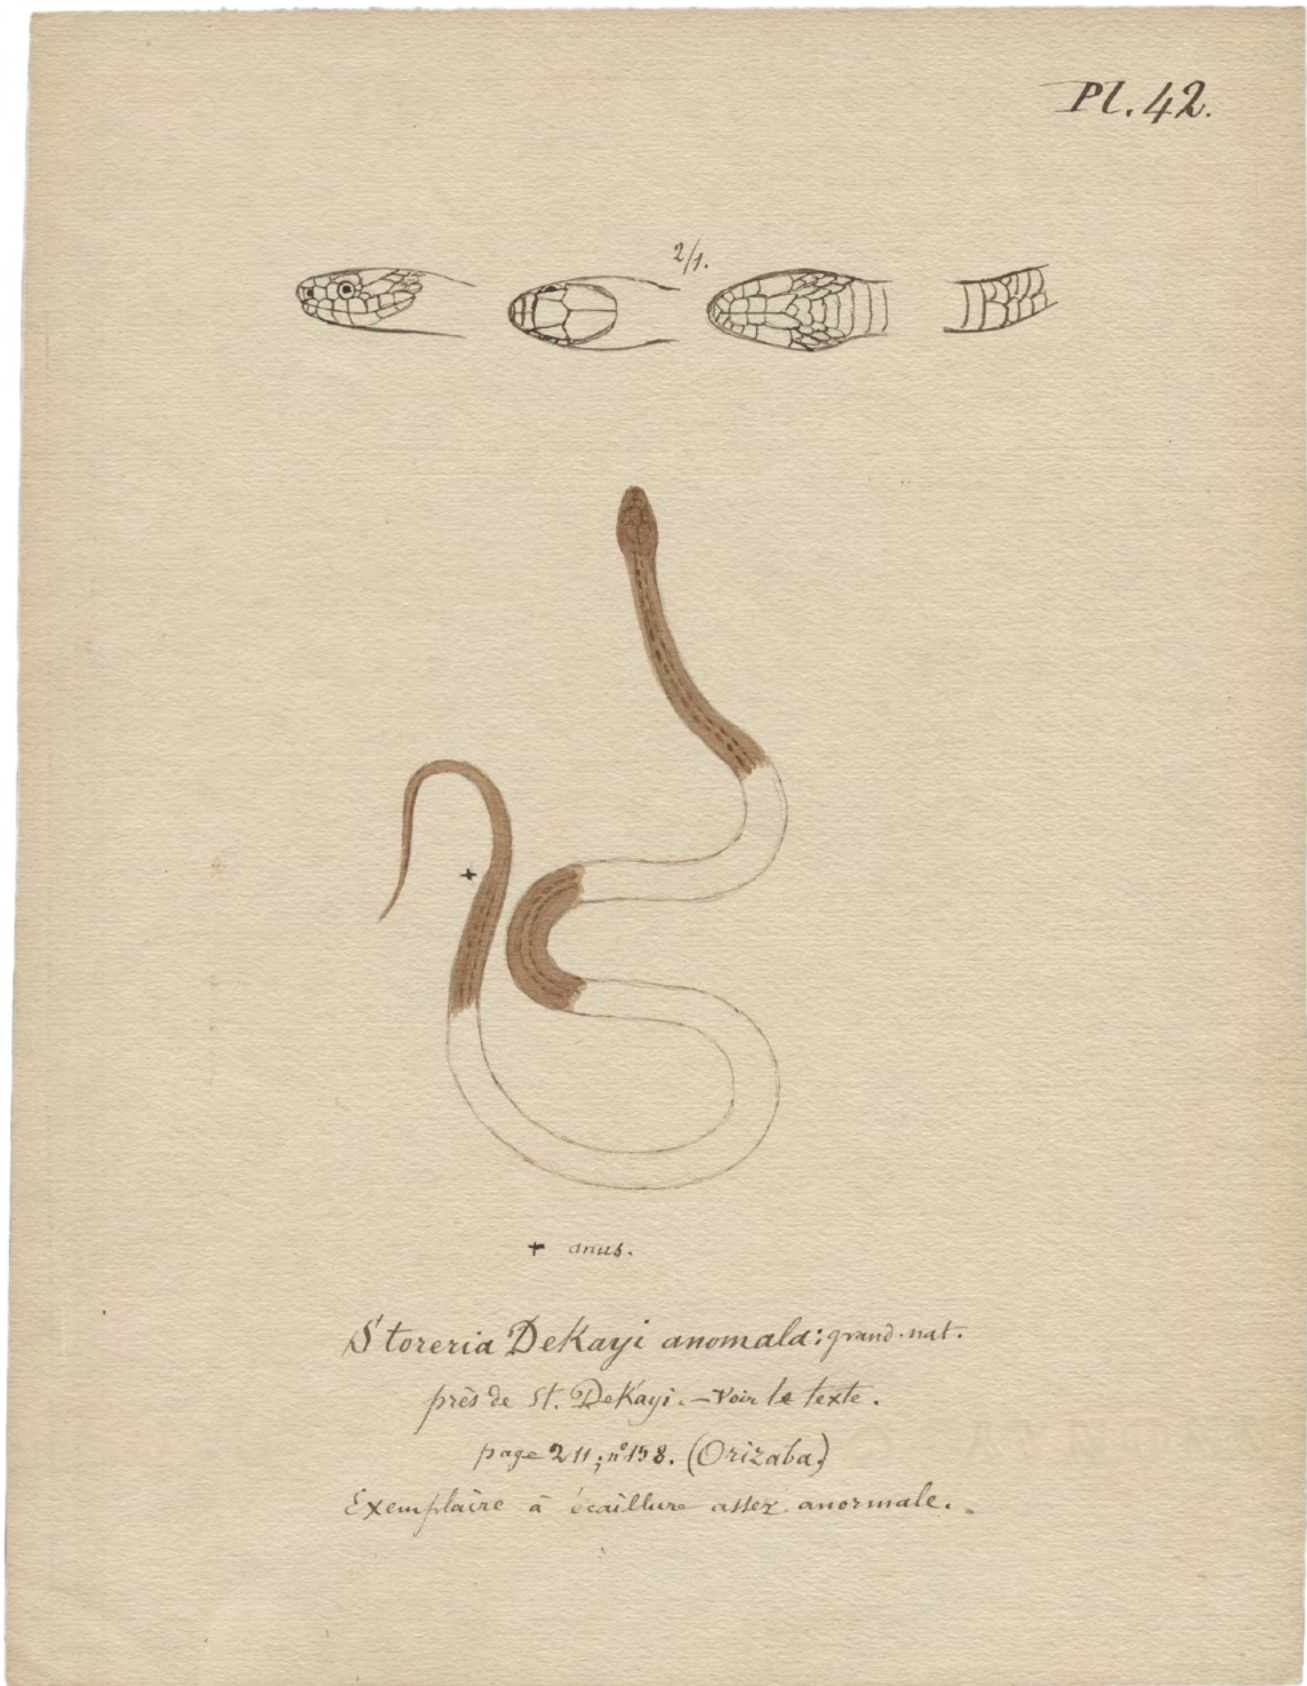 Pl. 42.
2/1.
+
+ anus.
Storeria DeKayi anomala: grand. nat.
près de St. DeKayi. – Voir le texte.
page 211; n° 158. (Orizaba)
Exemplaire à écaillure assez anormale.